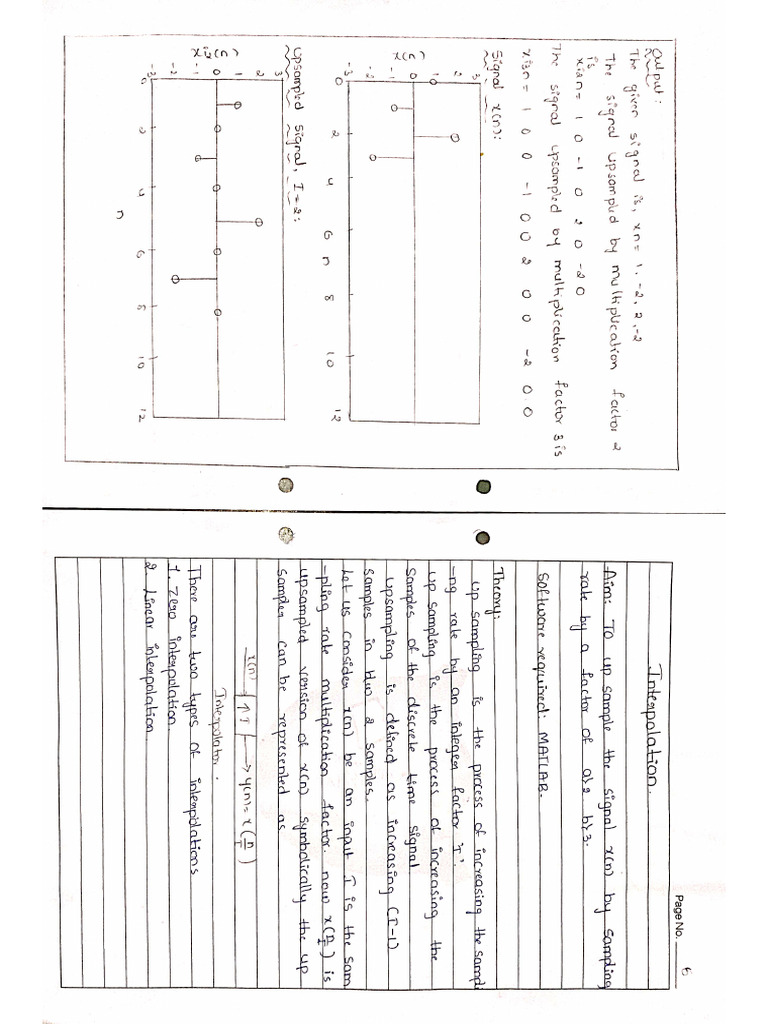 Output:
The given signal is, xn = 1, -2, 2, -2
The signal upsampled by multiplication factor 2
is
xi2n = 1 0 -1 0 2 0 -2 0
The signal upsampled by multiplication factor 3 is
xi3n = 1 0 0 -1 0 0 2 0 0 -2 0 0
Signal x(n):
x(n)
3
2
10
0
-1
-2
-3
0 2 4 6 8 10 12
n
Upsampled signal, I=2:
xi2(n)
3
2
1
0
-1
-2
-3
0 2 4 6 8 10 12
n
Page No. 6
Interpolation.
Aim: To up sample the signal x(n) by sampling
rate by a factor of a) 2 b) 3.
Software required: MATLAB.
Theory:
up sampling is the process of increasing the sampli
-ng rate by an integer factor 'I'.
up sampling is the process of increasing the
samples of the discrete time signal
upsampling is defined as increasing (I-1)
samples in b/w 2 samples.
Let us consider x(n) be an input I is the sam
-pling rate multiplication factor. now x(n/I) is
upsampled version of x(n) symbolically the up
sampler can be represented as
x(n) ↑I → y(n) = x(n/I)
Interpolator.
There are two types of interpolations
1. Zero interpolation.
2. Linear interpolation